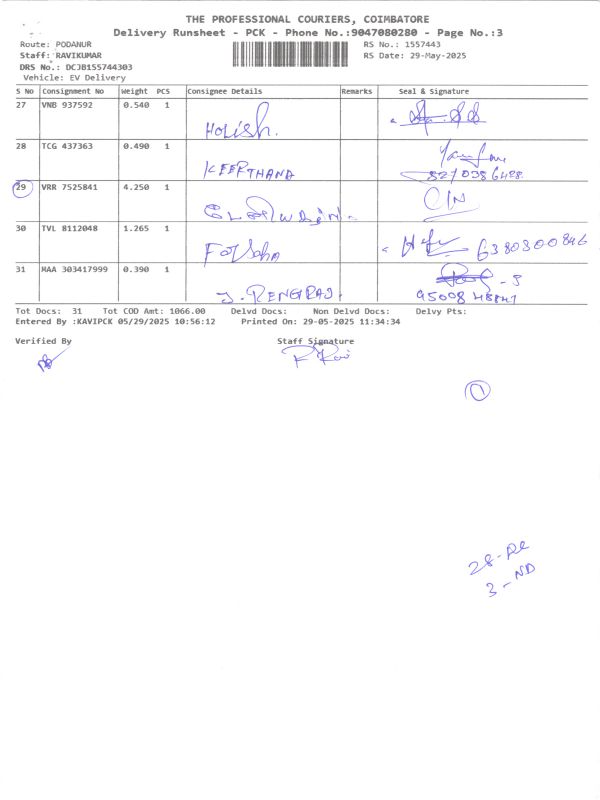 THE PROFESSIONAL COURIERS, COIMBATORE
Delivery Runsheet - PCK - Phone No.:9047080280 - Page No.:3
Route: PODANUR
RS No.: 1557443
Staff: RAVIKUMAR
RS Date: 29-May-2025
DRS No.: DCJB155744303
Vehicle: EV Delivery
S No Consignment No Weight PCS Consignee Details Remarks Seal & Signature
27 VNB 937592 0.540 1
28 TCG 437363 0.490 1 KEERTHANA
29 VRR 7525841 4.250 1
30 TVL 8112048 1.265 1 6380300846
31 MAA 303417999 0.390 1 J. RENGIRAJ.
Tot Docs: 31 Tot COD Amt: 1066.00 Delvd Docs: Non Delvd Docs: Delvy Pts:
Entered By :KAVIPCK 05/29/2025 10:56:12 Printed On: 29-05-2025 11:34:34
Verified By Staff Signature
1
28-DL
3-ND